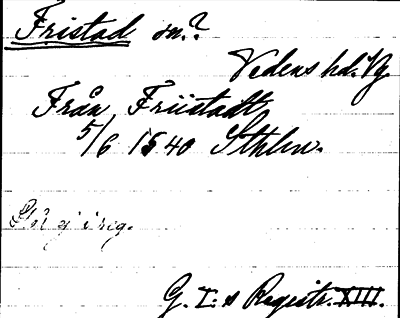 Fristad sn.?
Vedens hd. Vg.
Från Friistadt
5/6 1540 Sthlm.
G. I:s Registr. XIII.